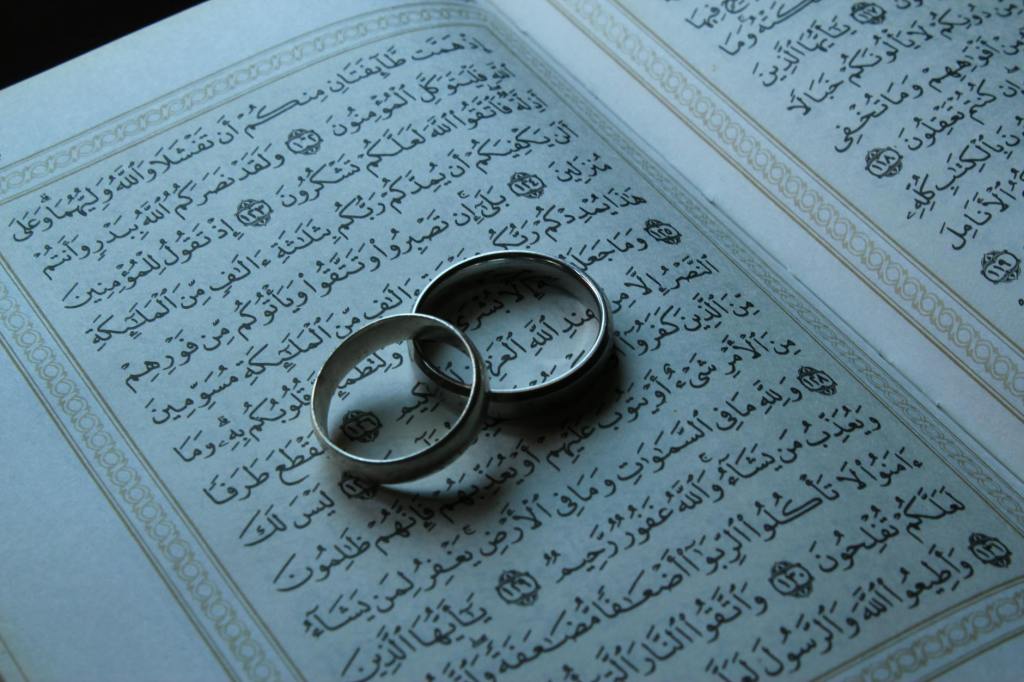 فِيهَا
وَمَا
يَٰٓأَيُّهَا ٱلَّذِينَ
دُونِكُمْ لَا يَأْلُونَكُمْ خَبَالًا
أَفْوَٰهِهِمْ وَمَا تُخْفِى
كُنتُمْ تَعْقِلُونَ ١١٨
بِٱلْكِتَٰبِ كُلِّهِۦ
ٱلْأَنَامِلَ
١١٩
إِذْ هَمَّت طَّآئِفَتَانِ مِنكُمْ أَن تَفْشَلَا وَٱللَّهُ وَلِيُّهُمَا وَعَلَى
ٱللَّهِ فَلْيَتَوَكَّلِ ٱلْمُؤْمِنُونَ ١٢٢ وَلَقَدْ نَصَرَكُمُ ٱللَّهُ بِبَدْرٍ وَأَنتُمْ
أَذِلَّةٌ فَٱتَّقُوا۟ ٱللَّهَ لَعَلَّكُمْ تَشْكُرُونَ ١٢٣ إِذْ تَقُولُ لِلْمُؤْمِنِينَ
أَلَن يَكْفِيَكُمْ أَن يُمِدَّكُمْ رَبُّكُم بِثَلَٰثَةِ ءَالَٰفٍ مِّنَ ٱلْمَلَٰٓئِكَةِ
مُنزَلِينَ ١٢٤ بَلَىٰٓ إِن تَصْبِرُوا۟ وَتَتَّقُوا۟ وَيَأْتُوكُم مِّن فَوْرِهِمْ
هَٰذَا يُمْدِدْكُمْ رَبُّكُم ءَالَٰفٍ مِّنَ ٱلْمَلَٰٓئِكَةِ مُسَوِّمِينَ
١٢٥ وَمَا جَعَلَهُ إِلَّا بُشْرَىٰ وَلِتَطْمَئِنَّ قُلُوبُكُم بِهِۦ وَمَا
ٱلنَّصْرُ إِلَّا مِنْ عِندِ ٱللَّهِ ٱلْعَزِيزِ ٱلْحَكِيمِ ١٢٦ لِيَقْطَعَ طَرَفًا
مِّنَ ٱلَّذِينَ كَفَرُوٓا۟ لَيْسَ لَكَ
مِنَ ٱلْأَمْرِ شَىْءٌ أَوْ يَتُوبَ عَلَيْهِمْ أَوْ يُعَذِّبَهُمْ فَإِنَّهُمْ ظَٰلِمُونَ
١٢٨ وَلِلَّهِ مَا فِى ٱلسَّمَٰوَٰتِ وَمَا فِى ٱلْأَرْضِ يَغْفِرُ لِمَن يَشَآءُ
وَيُعَذِّبُ مَن يَشَآءُ وَٱللَّهُ غَفُورٌ رَّحِيمٌ ١٢٩ يَٰٓأَيُّهَا ٱلَّذِينَ
ءَامَنُوا۟ لَا تَأْكُلُوا۟ ٱلرِّبَوٰٓا۟ أَضْعَٰفًا مُّضَٰعَفَةً
لَعَلَّكُمْ تُفْلِحُونَ ١٣٠ وَٱتَّقُوا۟ ٱلنَّارَ ٱلَّتِىٓ
١٣١ وَأَطِيعُوا۟ ٱللَّهَ وَٱلرَّسُولَ